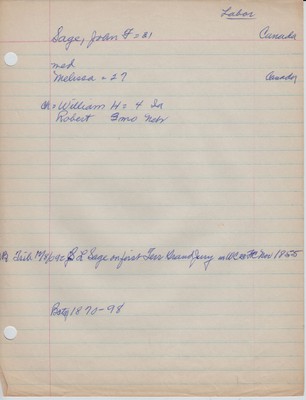 Labor
Sage, John F = 31 Canada
med
Melissa = 27 Canada
ch = William H = 4 Ia
Robert 3mo Nebr
Trib. B L Sage on first Terr Grand Jury in WC Nov 1855
Bota 1870-98